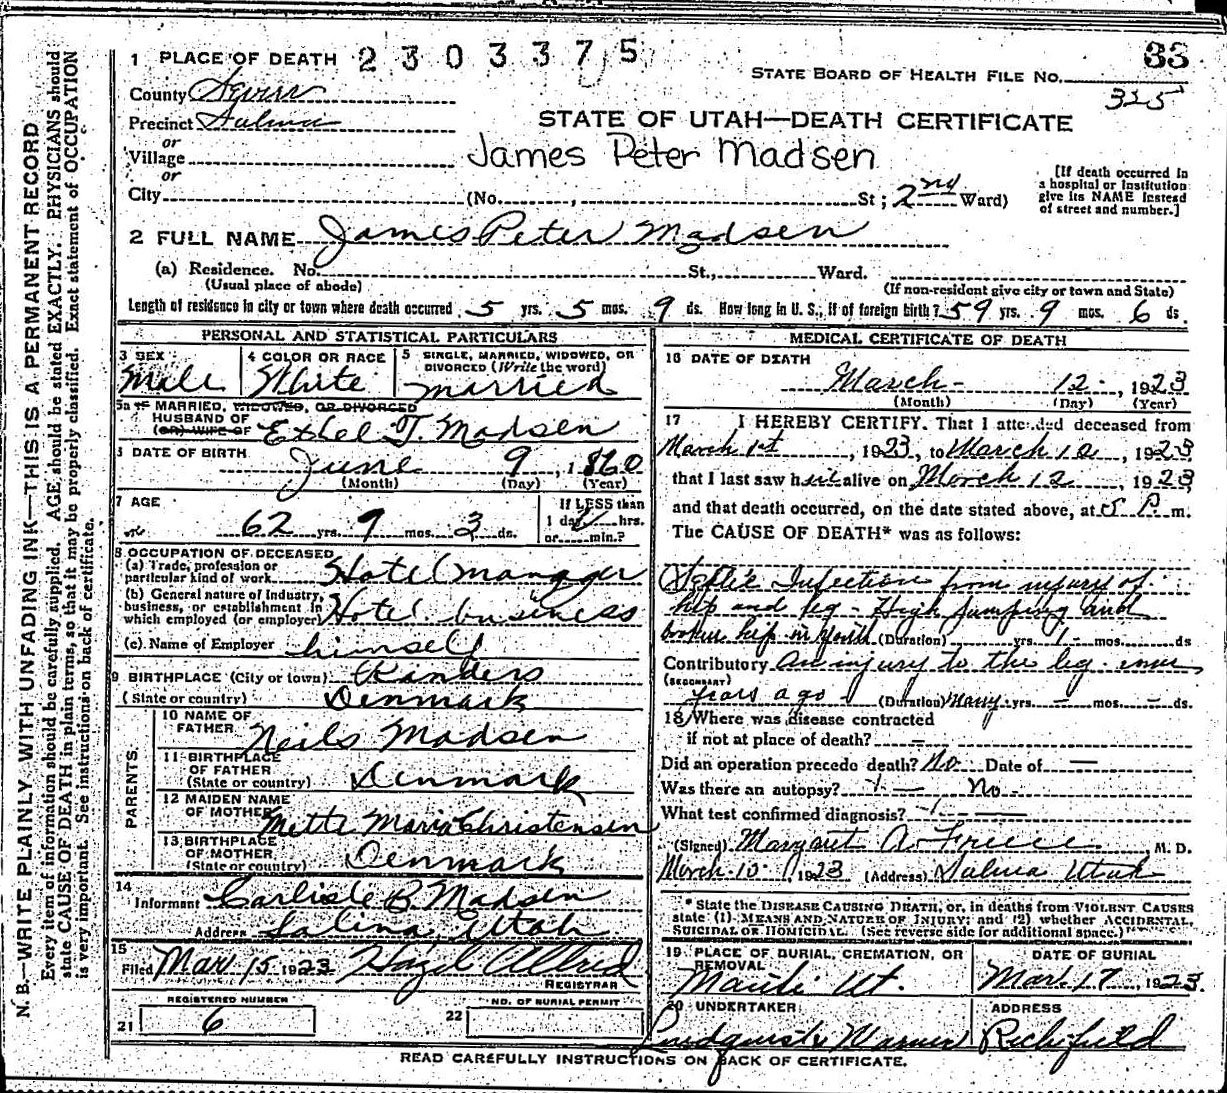 1 PLACE OF DEATH 2303375 33
STATE BOARD OF HEALTH FILE NO. 325
County Sevier
Precinct Salina
STATE OF UTAH—DEATH CERTIFICATE
or
Village James Peter Madsen
or
City (No. , St; 2nd Ward)
[If death occurred in
a hospital or Institution
give its NAME Instead
of street and number.]
2 FULL NAME James Peter Madsen
(a) Residence. No. St., Ward.
(Usual place of abode) (If non-resident give city or town and State)
Length of residence in city or town where death occurred 5 yrs. 5 mos. 9 ds. How long in U. S., if of foreign birth? 59 yrs. 9 mos. 6 ds.
PERSONAL AND STATISTICAL PARTICULARS
3 SEX Male
4 COLOR OR RACE White
5 SINGLE, MARRIED, WIDOWED, OR
DIVORCED (Write the word)
married
5a IF MARRIED, WIDOWED, OR DIVORCED
HUSBAND OF
(OR) WIFE OF Ethel T. Madsen
6 DATE OF BIRTH June 9, 1860
(Month) (Day) (Year)
7 AGE 62 yrs. 9 mos. 3 ds.
If LESS than
1 day hrs.
or min.?
8 OCCUPATION OF DECEASED
(a) Trade, profession or
particular kind of work Hotel manager
(b) General nature of Industry,
business, or establishment in
which employed (or employer) Hotel business
(c) Name of Employer himself
9 BIRTHPLACE (City or town) Randers
(State or country) Denmark
PARENTS
10 NAME OF
FATHER Neils Madsen
11 BIRTHPLACE
OF FATHER
(State or country) Denmark
12 MAIDEN NAME
OF MOTHER Mette Maria Christensen
13 BIRTHPLACE
OF MOTHER
(State or country) Denmark
14
Informant Carlisle B. Madsen
Address Salina Utah
15
Filed Mar 15 1923 Hazel Allred
REGISTRAR
REGISTERED NUMBER
21 6
NO. OF BURIAL PERMIT
22
MEDICAL CERTIFICATE OF DEATH
16 DATE OF DEATH
March 12, 1923
(Month) (Day) (Year)
17 I HEREBY CERTIFY. That I attended deceased from
March 1st, 1923, to March 12, 1923
that I last saw him alive on March 12, 1923
and that death occurred, on the date stated above, at 5 P. m.
The CAUSE OF DEATH* was as follows:
Septic Infection from injury of
hip and leg - High jumping and
broken hip in youth (Duration) yrs. 1 - mos. ds
Contributory An injury to the leg
(SECONDARY)
years ago (Duration) Many yrs. — mos. — ds.
18 Where was disease contracted
if not at place of death? —
Did an operation precede death? No Date of —
Was there an autopsy? — No -
What test confirmed diagnosis? —
(Signed) Margaret A. Freece, M. D.
March 10, 1923 (Address) Salina Utah
* State the DISEASE CAUSING DEATH, or, in deaths from VIOLENT CAUSES
state (1) MEANS AND NATURE OF INJURY; and (2) whether ACCIDENTAL,
SUICIDAL OR HOMICIDAL. (See reverse side for additional space.)
19 PLACE OF BURIAL, CREMATION, OR
REMOVAL
Manti Ut.
DATE OF BURIAL
Mar. 17, 1923.
20 UNDERTAKER
Lundquist & Warner
ADDRESS
Richfield
READ CAREFULLY INSTRUCTIONS ON BACK OF CERTIFICATE.
N. B.—WRITE PLAINLY WITH UNFADING INK—THIS IS A PERMANENT RECORD
Every item of information should be carefully supplied. AGE should be stated EXACTLY. PHYSICIANS should
state CAUSE OF DEATH in plain terms, so that it may be properly classified. Exact statement of OCCUPATION
is very important. See instructions on back of certificate.